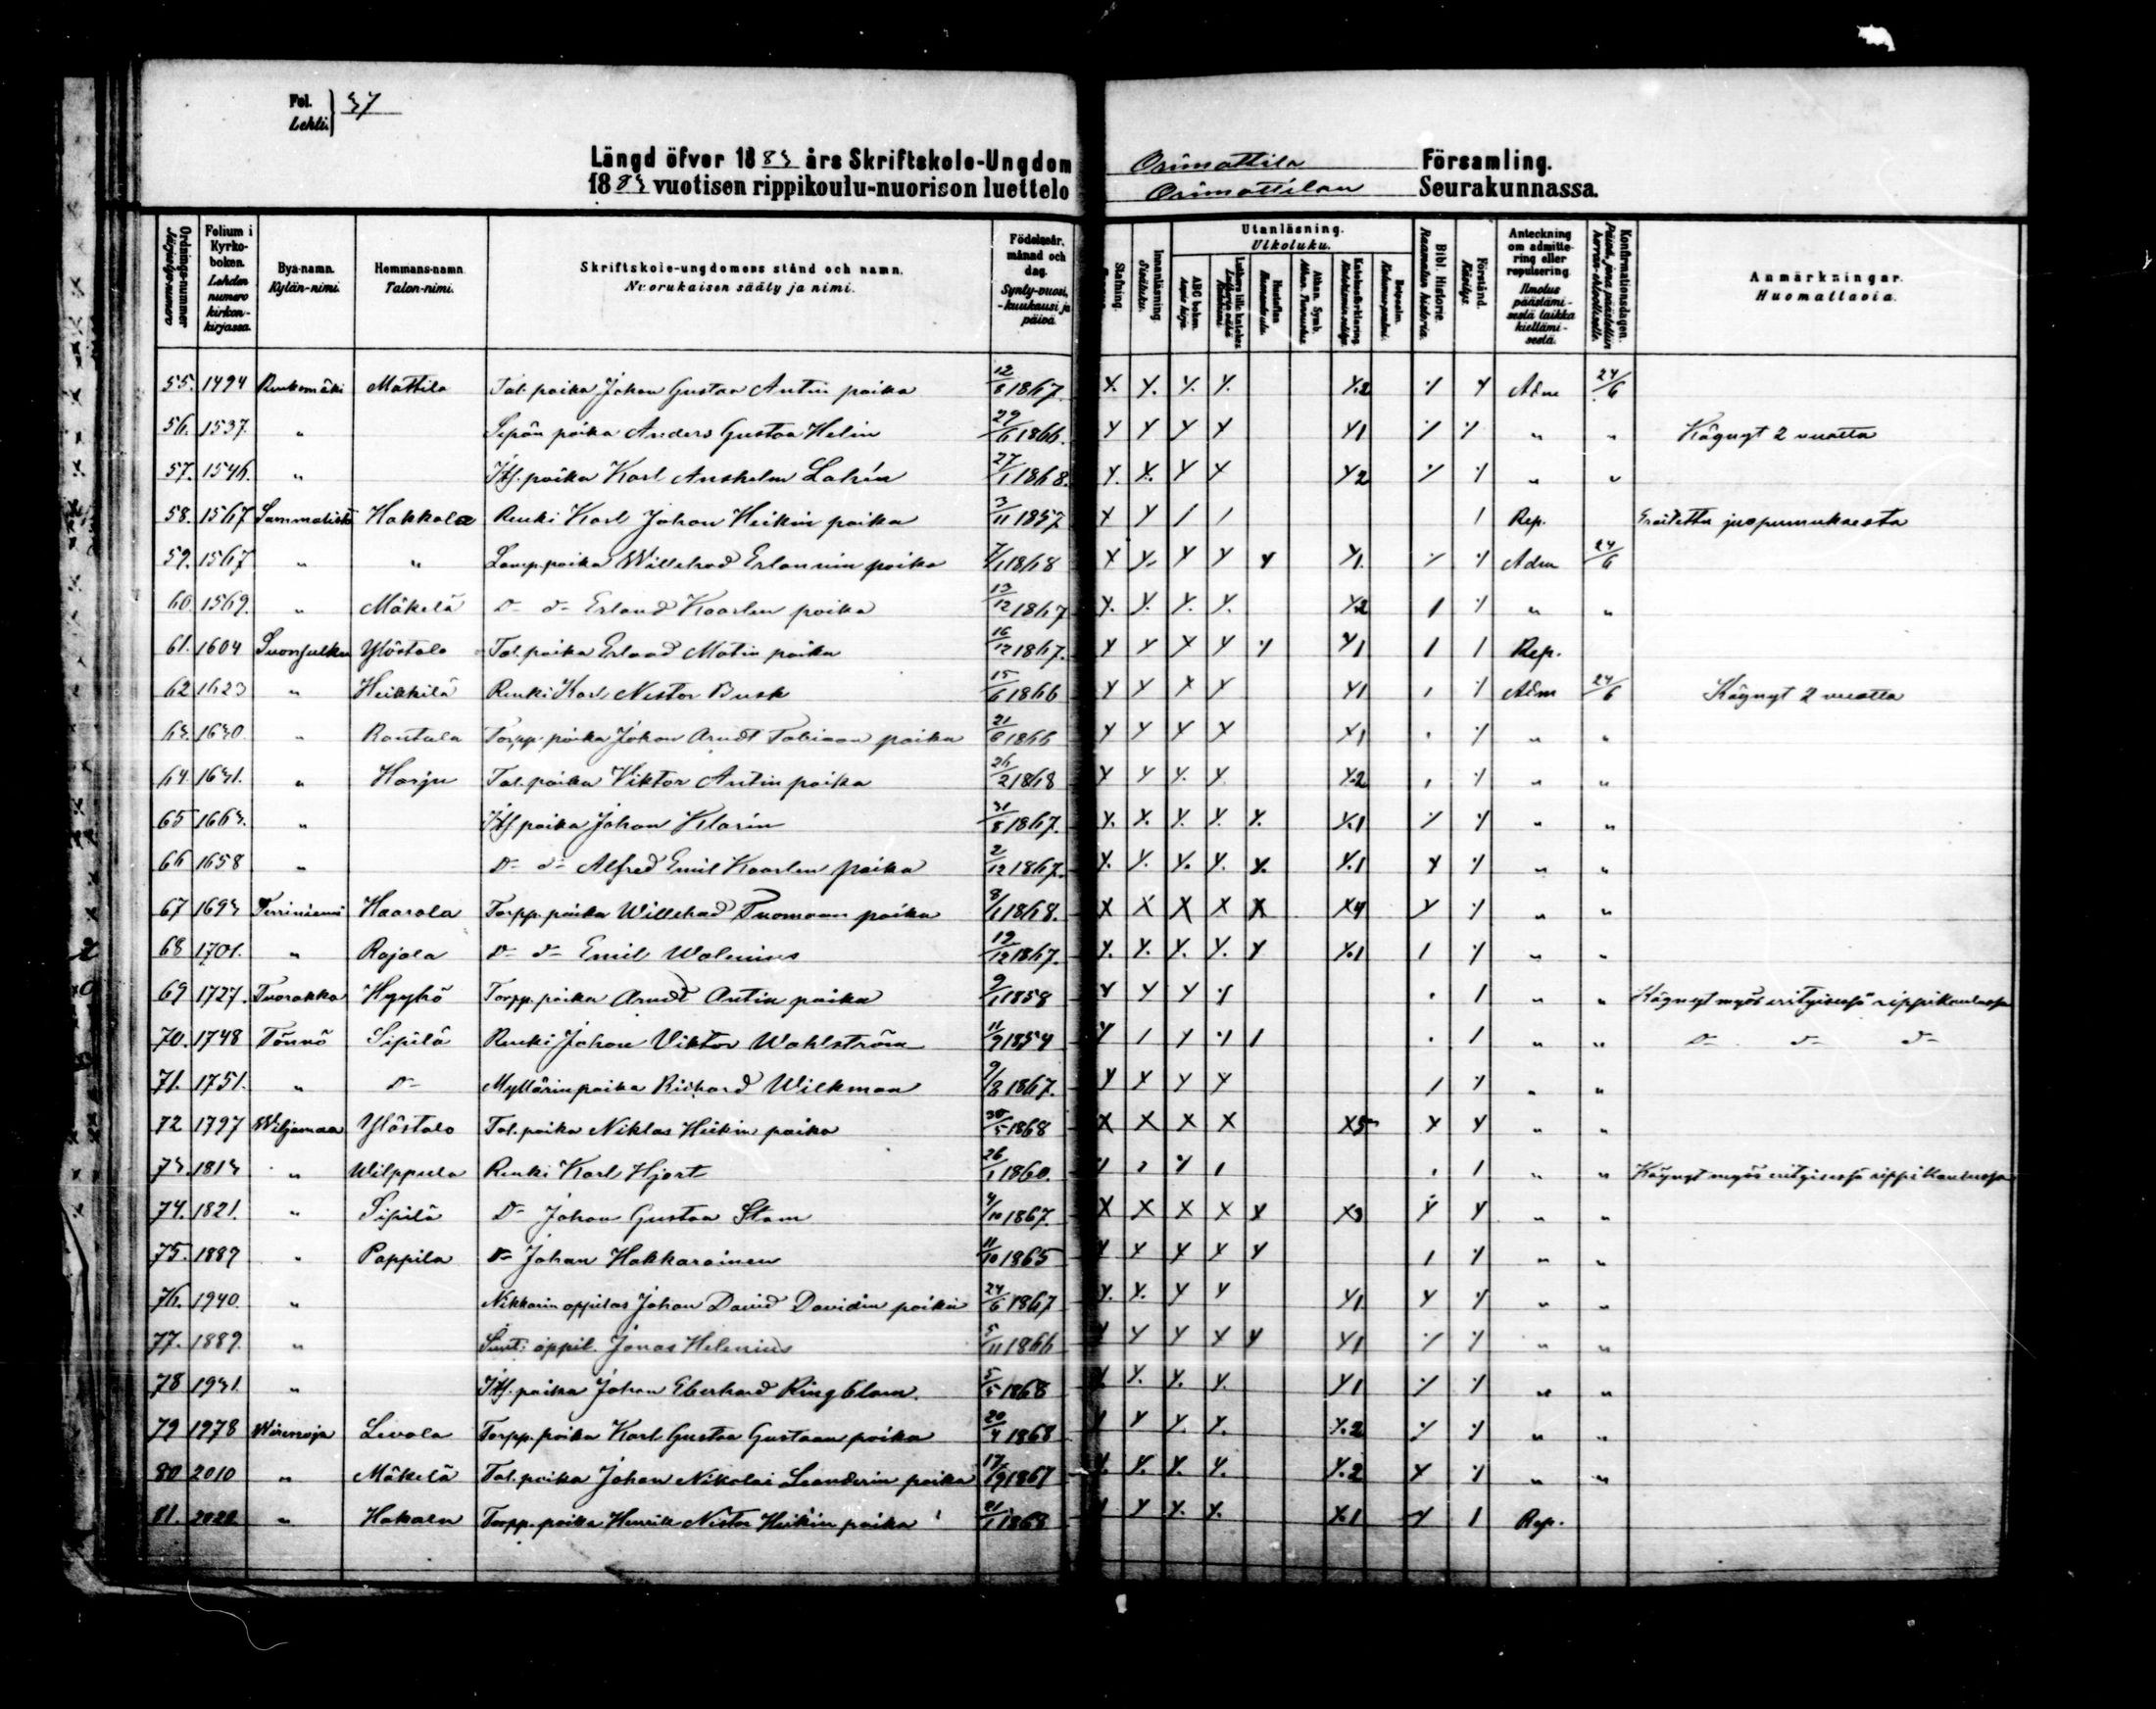 Fol. Lehti. } 37
Längd öfver 1883 års Skriftskole-Ungdom Orimattila Församling.
1883 vuotisen rippikoulu-nuorison luettelo Orimattilan Seurakunnassa.
Ordnings-nummer Järjestys-numero
Folium i Kyrko-boken. Lehden numero kirkon-kirjassa.
Bys-namn. Kylän-nimi.
Hemmans-namn. Talon-nimi.
Skriftskole-ungdomens stånd och namn. Nuorukaisen sääty ja nimi.
Födelseår, månad och dag. Synty-vuosi, -kuukausi ja päivä.
Stafning.
Innanläsning Sisäluku.
Utanläsning. Ulkoluku.
ABC boken. Aapis kirja.
Luthers lilla kateches
Hustaflan Huoneentaulu.
Athan. Symb. Athan. Tunnustus
Kateches förklaring
Botpsalm. Katumus-psalmi.
Bibl. Historie. Raamatun historia.
Förstånd. Käsitys.
Anteckning om admitte-ring eller repulsering. Ilmotus päästämi-sestä taikka kieltämi-sestä.
Konfirmationsdagen.
Anmärkningar. Huomattavia.
55. 1494 Ruukomäki Mattila Tal. poika Johan Gustaa Antin poika 12/8 1867 X. Y. Y. Y. Y.2 Adm 24/6
56. 1537. " Sepän poika Anders Gustaa Helin 29/6 1866. Y Y Y Y Y1 " " Käynyt 2 vuotta
57. 1546. " Its. poika Karl Anshelm Lahén 27/1 1868. Y. X. Y Y Y2 " "
58. 1567 Sammalisto Hakkola Renki Karl Johan Heikin poika 3/11 1857 X Y / / / Rep. Eroitettu juopumuksesta
59. 1567 " " Lamp. poika Willehad Erlannin poika 7/1 1868 X Y. Y Y Y Y1. Adm 24/6
60. 1569. " Mäkelä D- d- Erland Kaarlen poika 13/12 1867 Y. Y. Y. Y. Y.2 / " "
61. 1604 Suonjulku Ylöstalo Tal. poika Erland Matin poika 16/12 1867. Y Y X Y Y1 / / Rep.
62 1623 " Heikkilä Renki Karl Nestor Busk 15/6 1866 Y Y X Y Y1 Adm 24/6 Käynyt 2 vuotta
63. 1630. " Rautala Torpp. poika Johan Arndt Tobiaan poika 21/6 1866 Y Y Y Y X1 " "
64. 1631. " Harju Tal. poika Viktor Antin poika 26/2 1868 Y Y Y. Y Y.2 " "
65 1663. " Its. poika Johan Klarin 31/8 1867. Y. X. Y. Y. Y. Y.1 " "
66 1658 " D- d- Alfred Emil Kaarlen poika 2/12 1867. Y. Y. Y. Y. Y. Y.1 Y " "
67 1693 Terriniemi Haarala Torpp. poika Willehad Tuomaan poika 8/1 1868. X X X X X X4 Y " "
68 1701. " Rajala D- d- Emil Walenius 19/12 1867. Y. Y. Y. Y. Y Y.1 / " "
69 1727. Tuorakka Hyyhö Torpp. poika Arndt Antin poika 9/1 1858 Y Y Y / " " Käynyt myös erityisessä rippikoulussa
70. 1748 Tönnö Sipilä Renki Johan Viktor Wahlström 11/9 1854 / Y / / " " D- d- d-
71. 1751. " D- Myllärin poika Richard Wilkman 9/8 1867. Y X Y Y / " "
72 1797 Wiljamaa Ylöstalo Tal. poika Niklas Heikin poika 30/5 1868 X X X X X5 Y Y " "
73. 1813 " Wilppula Renki Karl Hjort 26/1 1860. / " " Käynyt myös erityisessä rippikoulussa
74. 1821. " Sipilä D- Johan Gustaa Stam 4/10 1867. X X X X Y X3 Y Y " "
75. 1887 " Pappila D- Johan Hakkarainen 11/10 1865 Y Y Y Y Y / " "
76. 1940. " Nikkarin oppilas Johan David Davidin poika 24/6 1867 Y. Y. Y Y Y1 Y " "
77. 1889. " oppil. Jonas Helenius 5/11 1866 Y Y Y Y Y Y1 " "
78 1931. " Its. poika Johan Eberhard Ringblom. 5/5 1868 Y. Y. Y. Y1 " "
79 1978 Wirenoja Levola Torpp. poika Karl Gustaa Gustaan poika 20/4 1868 Y Y. Y. Y.2 " "
80 2010 " Mäkelä Tal. poika Johan Nikolai Leanderin poika 17/9 1867 Y. Y. Y. Y. Y.2 Y " "
81. 2022 " Hakala Torpp. poika Henrik Nestor Heikin poika 21/1 1868 Y Y. Y. Y.1 / Rep.